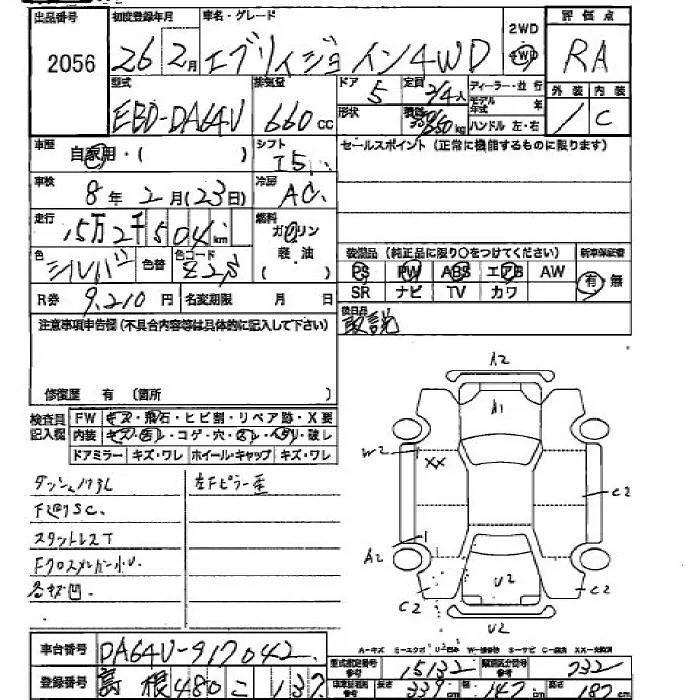 出品番号 初度登録年月 車名・グレード 2WD 評価点
2056 26 2月 エブリイジョイン4WD 4WD RA
型式 排気量 ドア 定員 ディーラー・並行 外装 内装
EBD-DA64V 660cc 5 2/4人 モデル年式 年
形状 積載 350kg ハンドル 左・右 C
車歴 自家用・( ) シフト I5 セールスポイント(正常に機能するものに限ります)
車検 8年2月(23日) 冷房 AC
走行 15万2千504km 燃料 ガソリン
軽油
色 シルバー 色替 色コード ( ) 装備品(純正品に限り○をつけてください) 新車保証書
PS PW ABS エアB AW 有・無
R券 9,210円 名変期限 月 日 SR ナビ TV カワ
注意事項申告欄(不具合内容等は具体的に記入して下さい) 後日品 取説
修復歴 有 (箇所 )
検査員 FW キズ・飛石・ヒビ割・リペア跡・X要
記入欄 内装 キズ・コゲ・穴・破レ
ドアミラー キズ・ワレ ホイール・キャップ キズ・ワレ
左Fピラー歪
スタットレスT
A2
A1
W2 XX
C2
A2
C2 U2 C2
U2
車台番号 DA64V-917042 型式指定番号 15132 類別区分番号 232
登録番号 島根480こ137 参考 長さ 339cm 幅 147cm 高さ 187cm